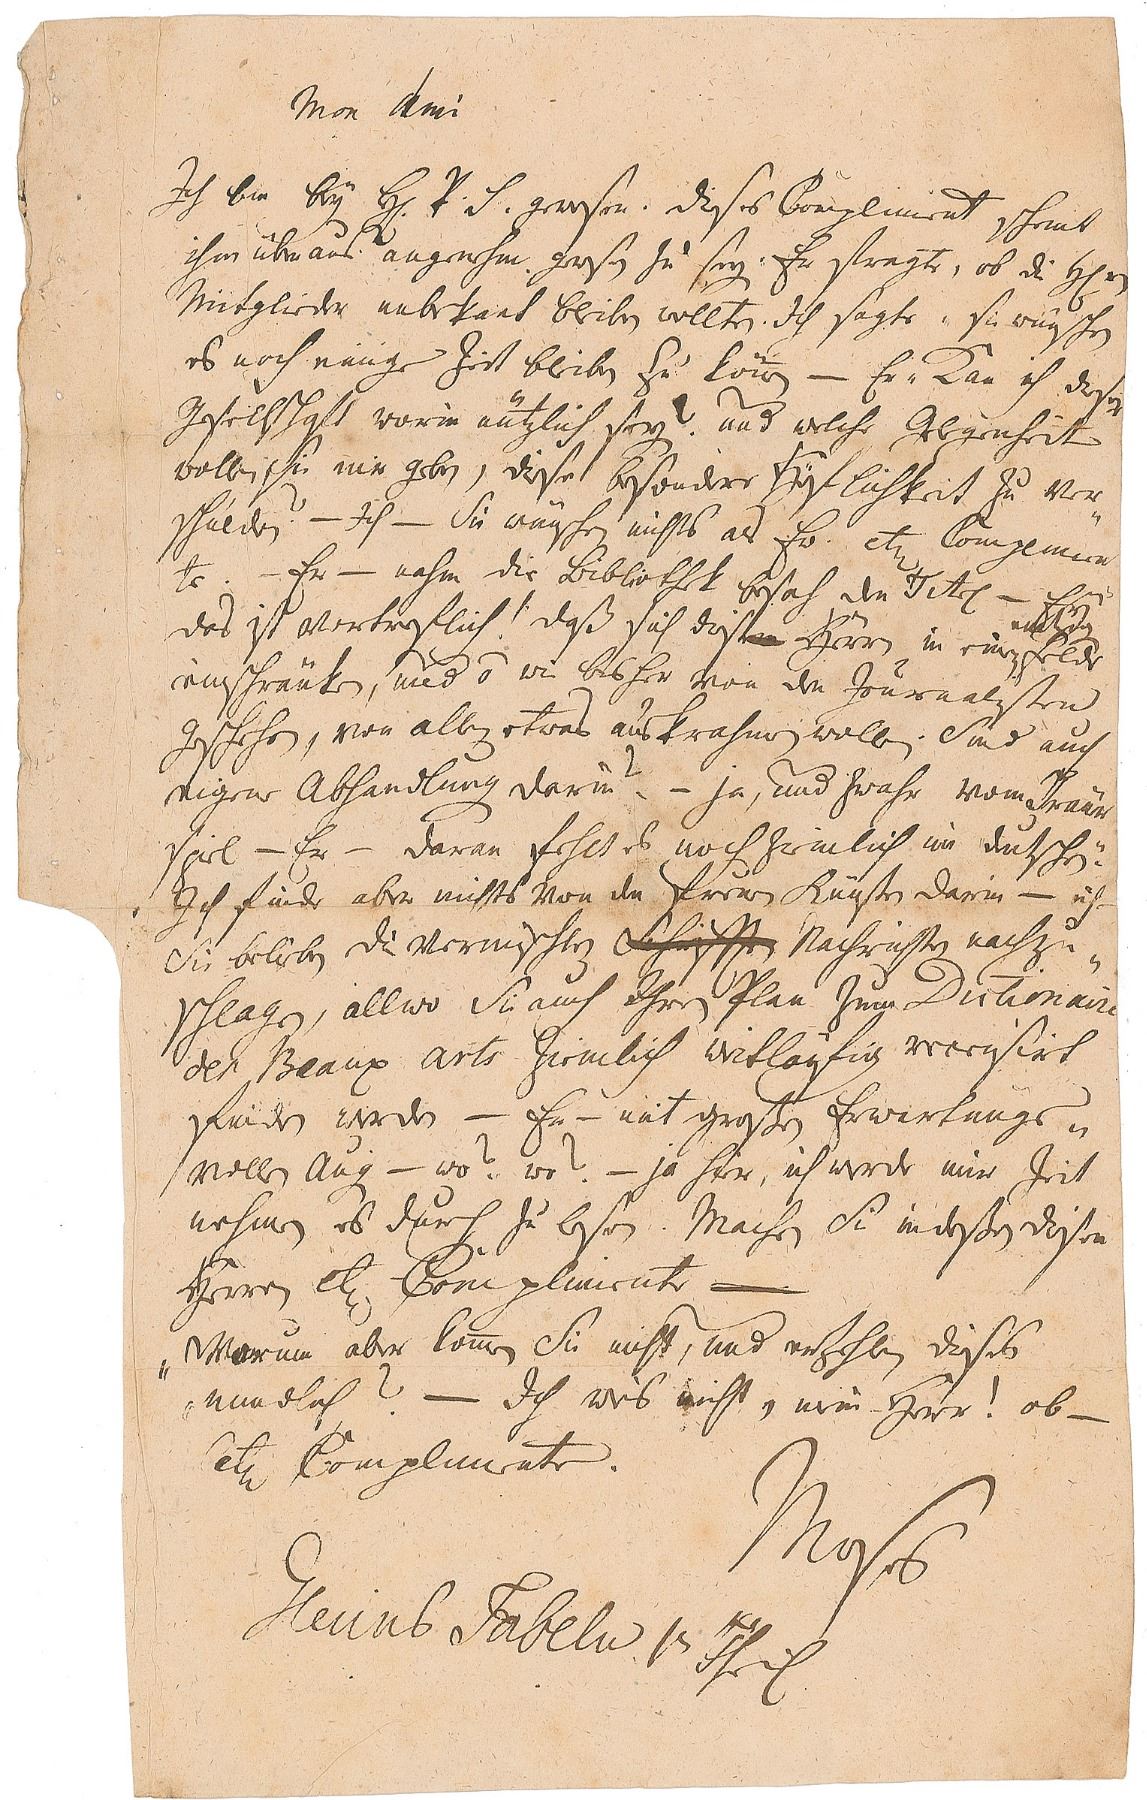 Mon Ami
Ich bin bey H. P. S. gewesen. dieses Compliment scheint
ihm überaus angenehm gewesen zu seyn. Er fragte, ob die HH.
Mitglieder unbekant bleiben wollten. Ich sagte, sie wünschen
es noch einige Zeit bleiben zu können — Er „ Kan ich dieser
Gesellschaft worin nützlich seyn? und welche Gelegenheit
wollen Sie mir geben, diese besondere Höflichkeit zu ver„
schulden? — Ich — Sie wünschen nichts als Ew. etc Complimen
te. — Er — nahm die Bibliothek besah den Titel — Ey
das ist vortreflich! daß sich diese Herrn in
einzig
einem Felde
einschränken, und o wie bisher von den Journalisten
geschehen, von allen etwas auskrahmen wollen. Sind auch
eigene Abhandlung darin? — ja, und zwahr vom Trauer
spiel — Er — daran fehlt es noch ziemlich im deutschen.
Ich finde aber nichts von den freien Künsten darin — ich —
Sie belieben die vermischten Schrifften Nachrichten nachzu„
schlagen, allwo Sie auch Ihren Plan zum Dictionaire
des Beaux arts ziemlich weitläufig recensirt
finden werden — Er — mit großen Erwartungs„
vollen Aug — wo? wo? — ja hier, ich werde mir Zeit
nehmen es durch zu lesen. Machen Sie indessen diesen
Herren etc Complimente —
„Warum aber komen Sie nicht, und erzehlen dieses
„mündlich? — Ich weis nicht, mein Herr! ob —
etc Complimente.
Moses
Gleims Fabeln 1er Theil